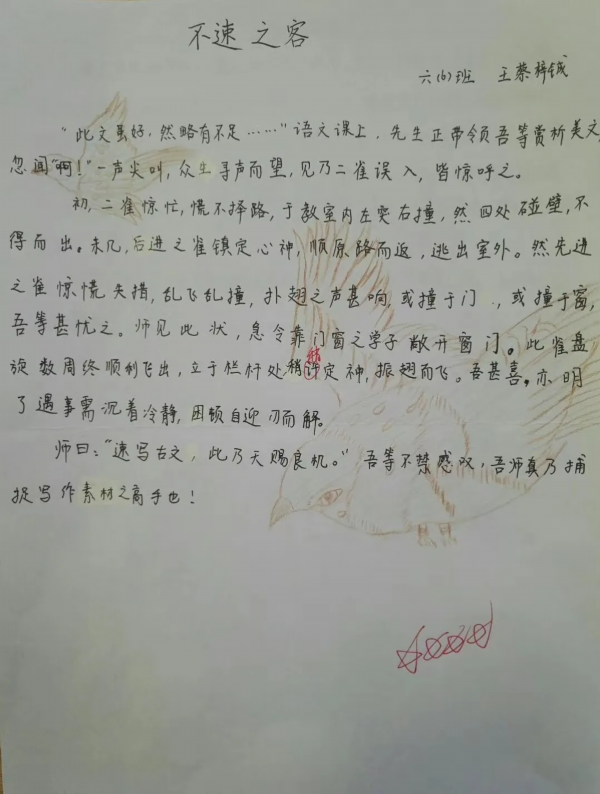 不速之客
六(6)班 王蔡梓铖
“此文虽好，然略有不足……”语文课上，先生正带领吾等赏析美文，
忽闻“啊！”一声尖叫，众生寻声而望，见乃二雀误入，皆惊呼之。
初，二雀惊忙，慌不择路，于教室内左突右撞，然四处碰壁，不
得而出。未几，后进之雀镇定心神，顺原路而返，逃出室外。然先进
之雀惊慌失措，乱飞乱撞，扑翅之声甚响，或撞于门，或撞于窗，
吾等甚忧之。师见此状，急令靠门窗之学子敞开窗门。此雀盘
旋数周终顺利飞出，立于栏杆处稍许定神，振翅而飞。吾甚喜，亦明
了遇事需沉着冷静，困顿自迎刃而解。
师曰：“速写古文，此乃天赐良机。”吾等不禁感叹，吾师真乃捕
捉写作素材之高手也！